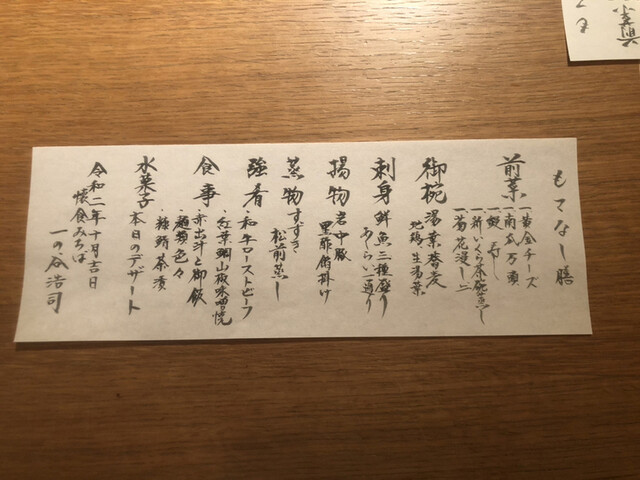 もてなし膳
前菜
一、黄金チーズ
一、南瓜万頭
一、鮫寿し
一、新いくら茶碗蒸し
一、菊花浸し
御椀 湯葉蕎麦
地鶏 生湯葉
刺身 鮮魚三種盛り
あしらい一通り
揚物 岩中豚
黒酢餡掛け
蒸物 すずき
松前蒸し
強肴 ・和牛ローストビーフ
・紅葉鯛山椒味噌幌
食事 ・赤出汁と御飯
・麺類色々
・胡麻鯛茶漬
水菓子 本日のデザート
令和二年十月吉日
懐食みちば
一の谷浩司
前菜
ても